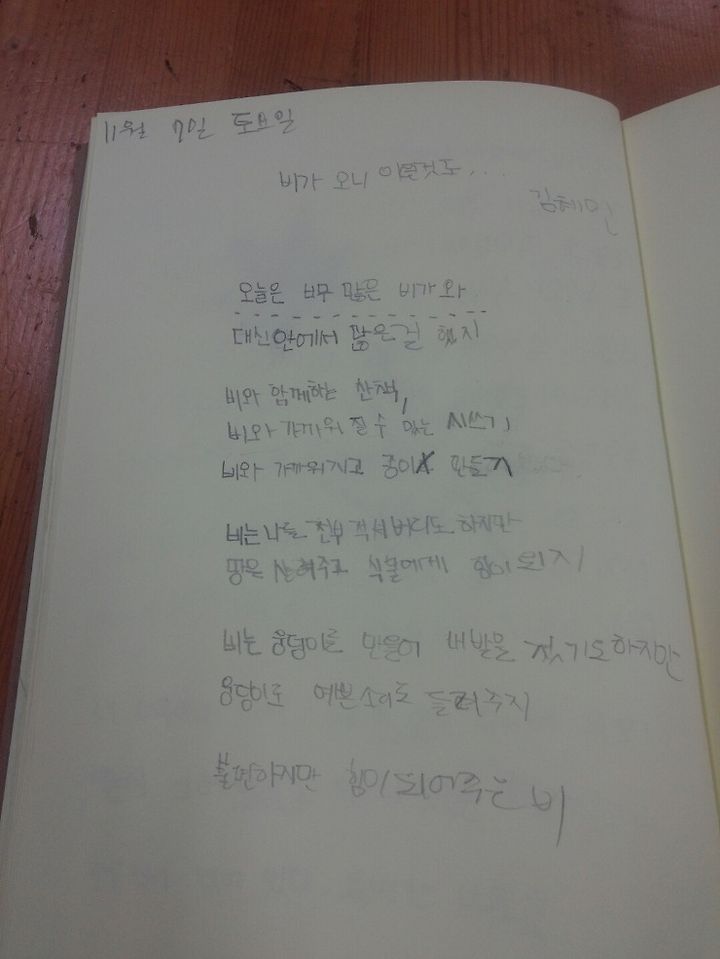 11월 7일 토요일
비가 오니 이런것도...
김혜민
오늘은 너무 많은 비가 와
대신 안에서 많은걸 했지
비와 함께하는 산책,
비와 가까워 질 수 있는 시쓰기,
비와 가까워지고 종이 만들기
비는 나를 전부 적셔버리도 하지만
땅은 살려주고 식물에게 힘이 되지
비는 웅덩이를 만들어 내발을 젖기도하지만
웅덩이로 예쁜소리도 들려주지
불편하지만 힘이 되어주는 비